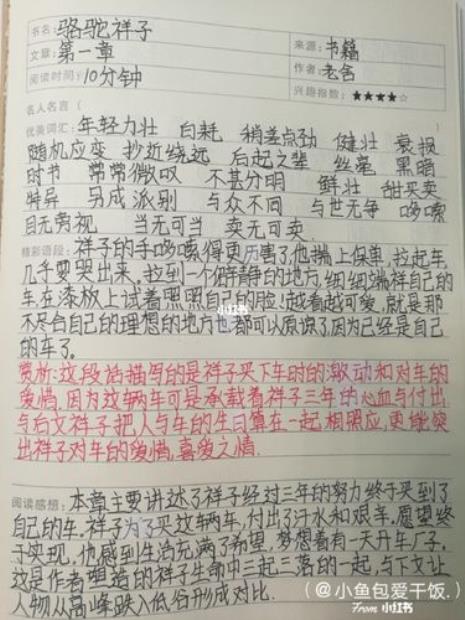 书名：骆驼祥子
文章：第一章 来源：书籍
阅读时间：10分钟 作者：老舍
兴趣指数：★★★★☆
名人名言（
优美词汇：年轻力壮 白耗 稍差点劲 健壮 衰损
随机应变 抄近绕远 后起之辈 丝毫 黑暗
时书 常常微叹 不甚分明 鲜壮 甜买卖
特异 另成派别 与众不同 与世无争 哆嗦
目无旁视 当无可当 卖无可卖
精彩语段：祥子的手哆嗦得更厉害了，他揣上保单，拉起车，
几乎要哭出来。拉到一个僻静的地方，细细端祥自己的
车，在漆板上试着照照自己的脸！越看越可爱，就是那
不尽合自己的理想的地方也都可以原谅了，因为已经是自己
的车了。
赏析：这段话描写的是祥子买下车时的激动和对车的
爱惜。因为这辆车可是承载着祥子三年的心血与付出，
与后文祥子把人与车的生日算在一起相照应，更能突
出祥子对车的爱惜，喜爱之情.
阅读感想：本章主要讲述了祥子经过三年的努力终于买到了
自己的车。祥子为了买这辆车，付出了汗水和艰辛。愿望终
于实现，他感到生活充满了希望，梦想着有一天开车厂子。
这是作者塑造的祥子生命中三起三落的一起，与下文让
人物从高峰跌入低谷形成对比.
小红书
（@小鱼包爱干饭.）
From 小红书